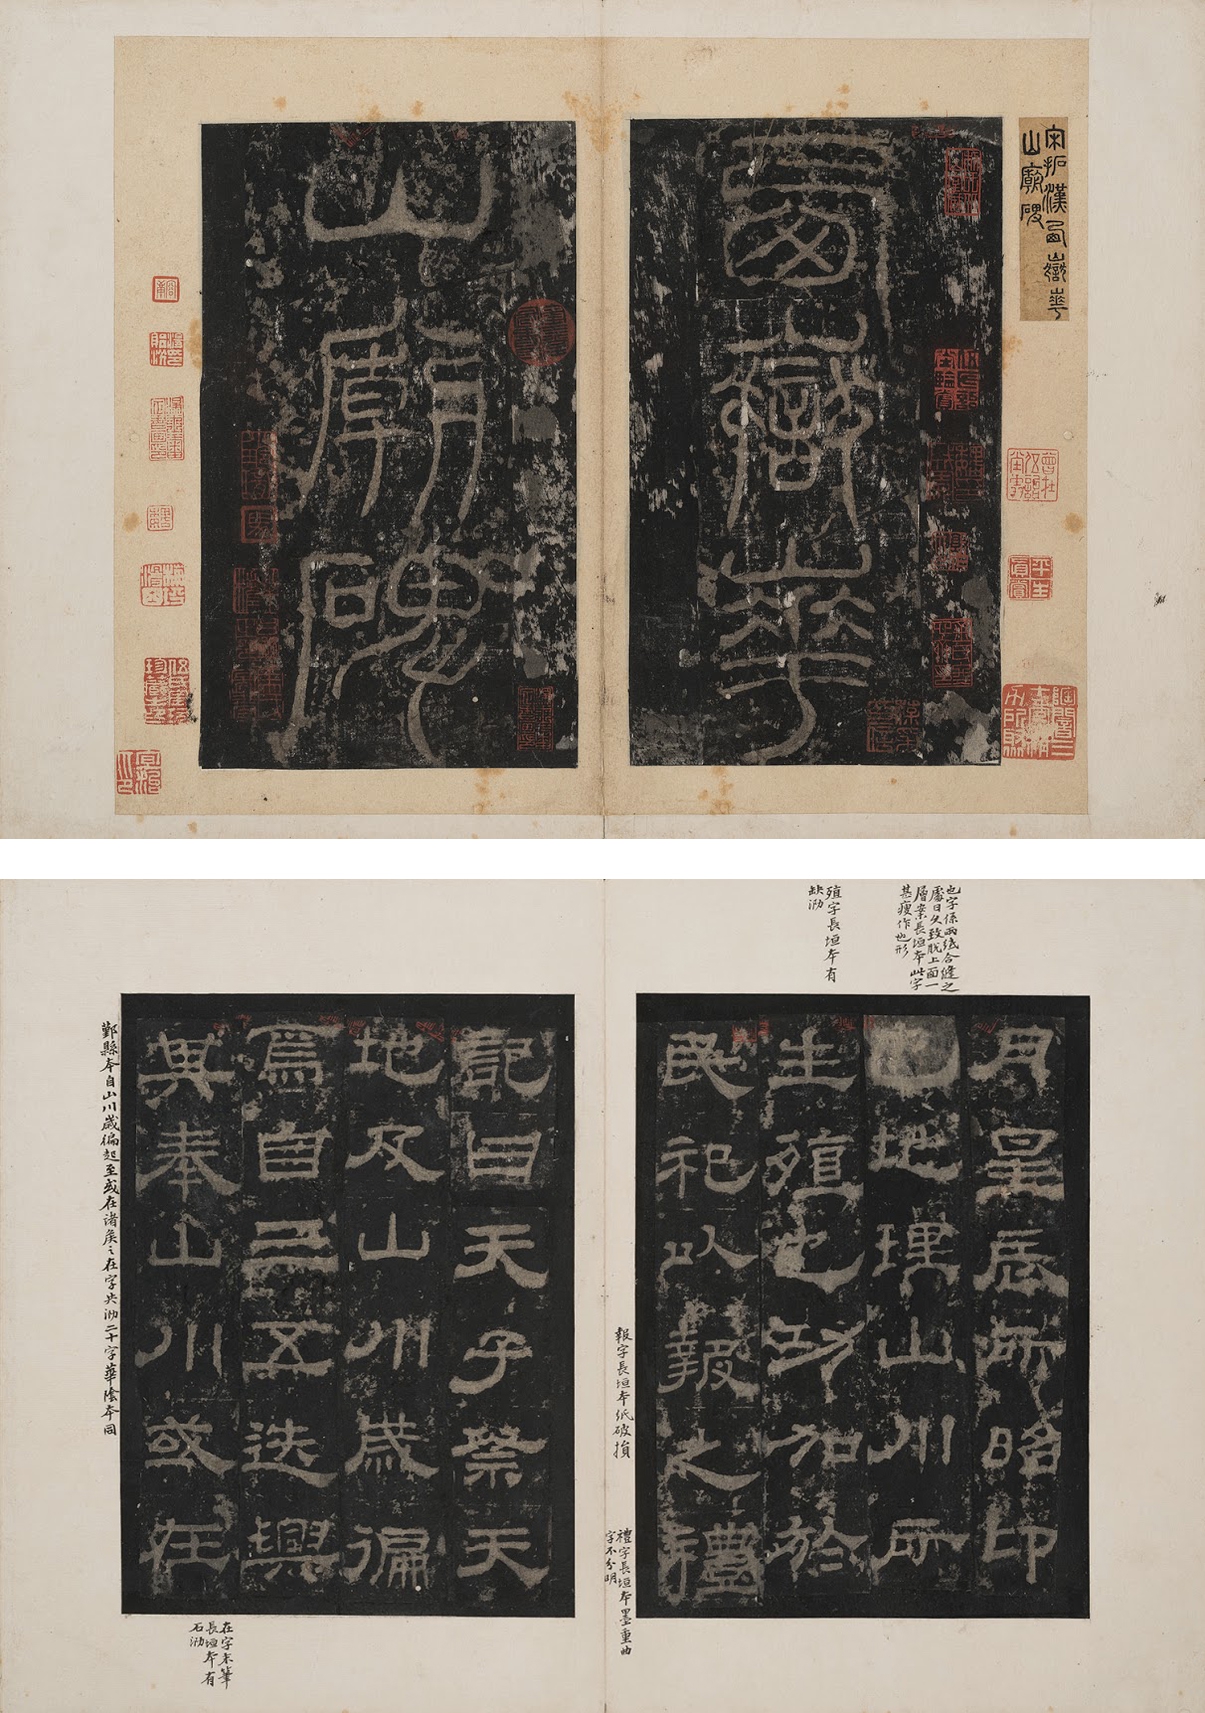 宋拓漢西嶽華
山廟碑
西嶽華
山廟碑
平生
真賞
也字係兩紙合縫之
處日久致脫上面一
層案長垣本此字
甚瘦作也形
殖字長垣本有
缺泐
月星辰所昭卬
也地理山川所
生殖也功加於
民祀以報之禮
報字長垣本紙破損
禮字長垣本墨重曲
字不分明
記曰天子祭天
地及山川歲徧
焉自三五迭興
其奉山川或在
鄞縣本自山川歲徧起至或在諸矦之在字共泐二十字華陰本同
在字末筆
長垣本有
石泐